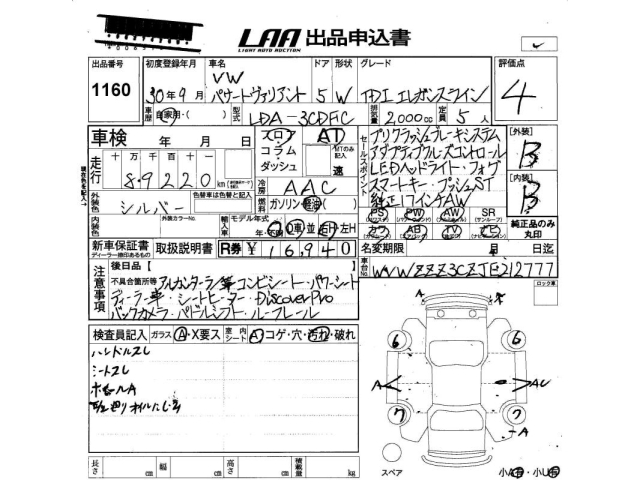 LAA 出品申込書
LIGHT AUTO AUCTION
出品番号
1160
初度登録年月 車名 ドア 形状 グレード
VW
30年9月 パサートヴァリアント 5 W TDI エレガンスライン
評価点
4
車歴 自家用・( ) 型式 LDA-3CDFC 排気量 2,000cc 定員 5人
車検 年 月 日
フロア AT
コラム
ダッシュ
MTのみ記入
速
走行 十万 万 千 百 十
89220 km
冷房 AAC
外装色 シルバー
色替車は色替と記入
燃料 ガソリン・軽油( )
内装色
外装カラーNo.
輸入車 モデル年式
年・不明 D車・並 右H・左H
新車保証書 取扱説明書 R券 ¥16,940
ディーラー捺印あるもの
セールスポイント
プリクラッシュブレーキシステム
アダプティブクルーズコントロール
LEDヘッドライト・フォグ
スマートキー・プッシュST
純正17インチAW
PS PW AW SR
AB TV
[外装]
B
[内装]
B
純正品のみ丸印
名変期限 月 日迄
車台No. WVWZZZ3CZJE212777
ロック車
注意事項
後日品【 】
不具合箇所等 アルカンターラ/革コンビシート・パワーシート
ディーラー車・シートヒーター・DiscoverPro
バックカメラ・パドルシフト・ルーフレール
検査員記入 ガラス A・X要ス 室内シート A コゲ・穴・汚れ・破れ
ハンドルスレ
シートスレ
ホイールA
A
A
6 6
A AU
7 7
A
スペア
小A有・小U有
長さ cm 幅 cm 高さ cm 積載量 kg